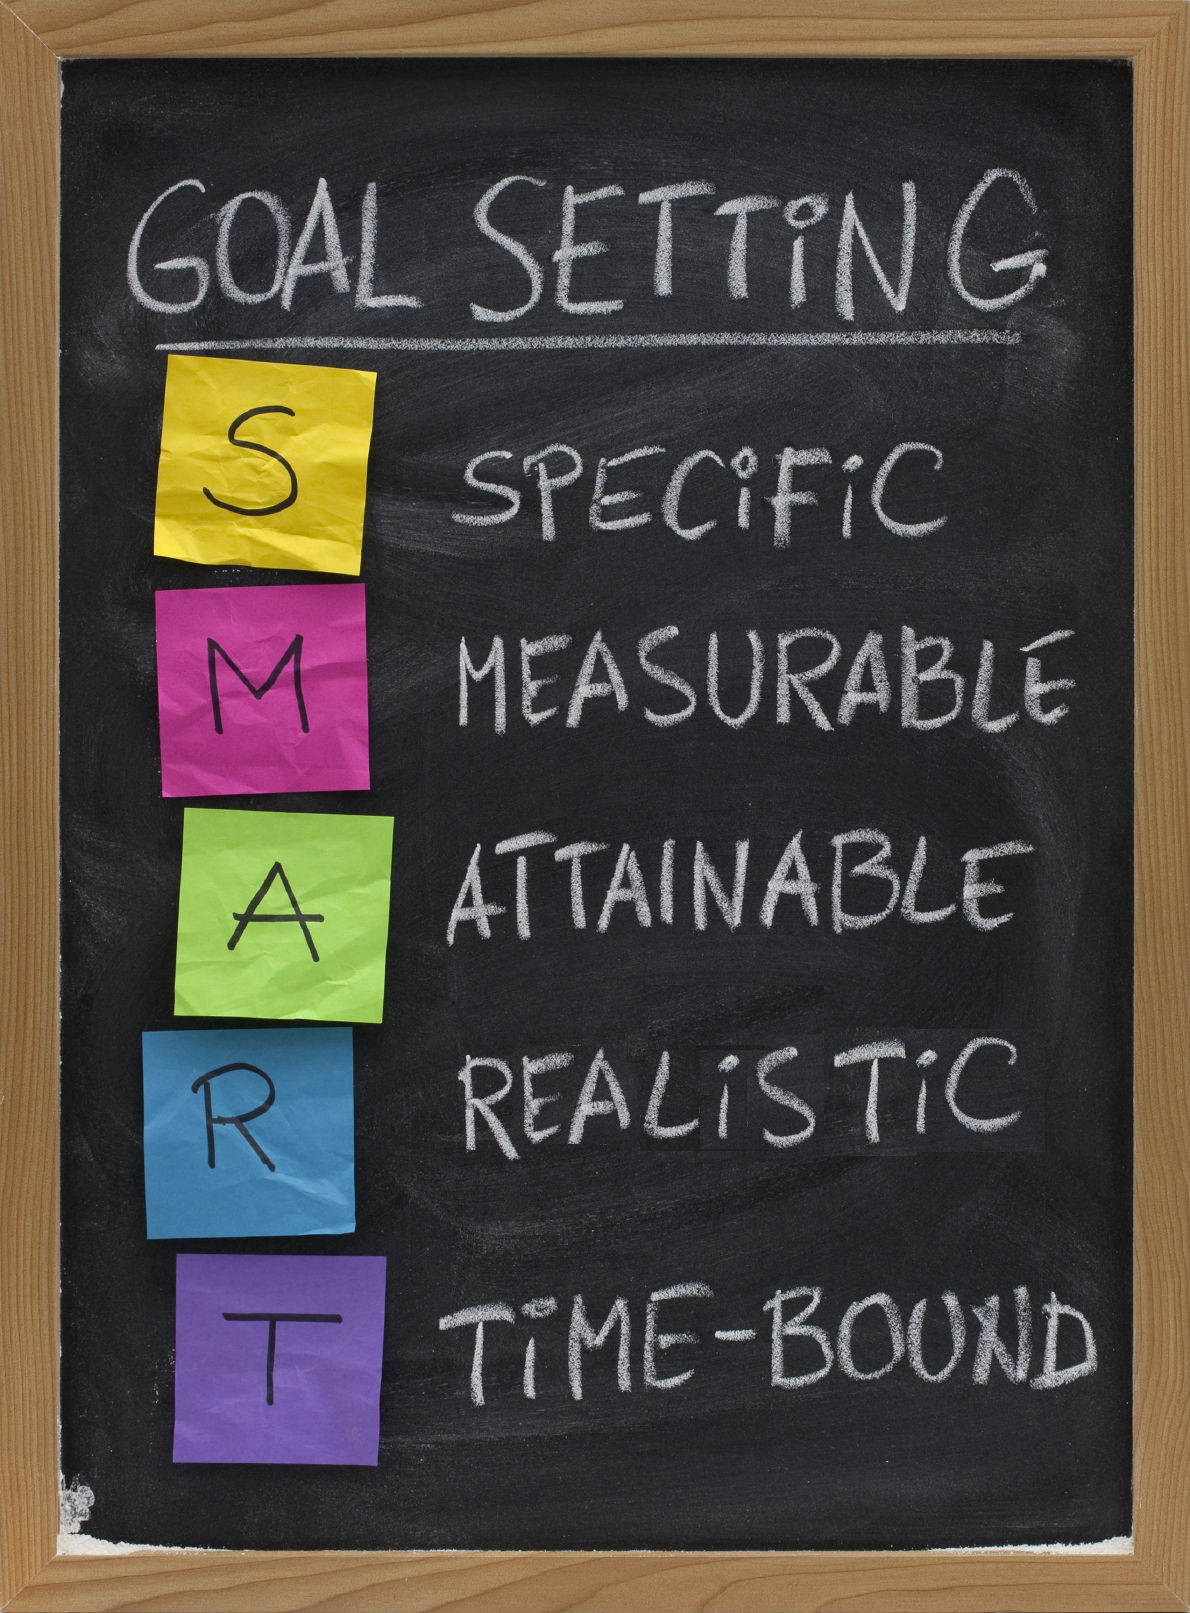 GOAL SETTING
S SPECIFIC
M MEASURABLE
A ATTAINABLE
R REALISTIC
T TIME-BOUND